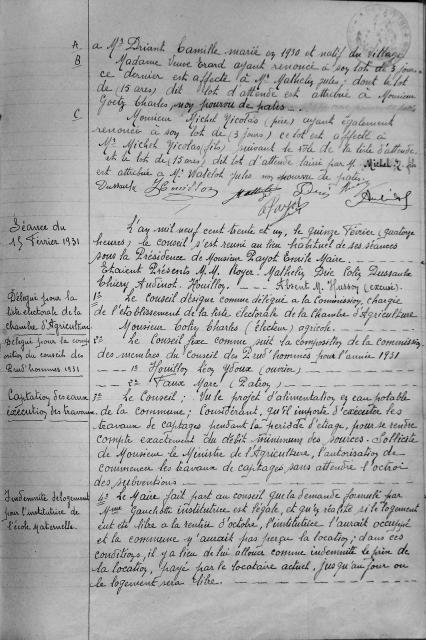 A a Mr Driant Camille marié en 1930 et natif du village
B Madame Veuve Erard ayant renoncé à son lot de 3 jours
ce dernier est affecté à Mr Mathelin Jules; dont le lot
de (15 ares) dit lot d'attende est attribué à Monsieur
Goetz Charles, non pourvu de pates.
C Monsieur Michel Nicolas (père) ayant également
renoncé à son lot de (3 jours) ce lot est affecté à
Mr Michel Nicolas (fils) suivant le rôle de la liste d'attende
et le lot de (15 ares) dit lot d'attende laissé par M. Michel N. fils
est attribué à Mr Watelot Jules non pourvu de pates.
Dussaulx Houillon
Séance du
15 Février 1931
L'an mil neuf cent trente et un, le quinze Février (quatorze
heures) le conseil s'est réuni au lieu habituel de ses séances
sous la Présidence de Monsieur Payot Emile Maire.
Etaient Présents M.M. Royer. Mathelin. Drie. Colin. Dussaulx
Thiery. Audinot. Houillon. Absent M. Husson (excusé).
Délégué pour la
liste électorale de la
chambre d'Agriculture
1º Le Conseil désigne comme délégué à la Commission, chargée
de l'établissement de la liste électorale de la Chambre d'Agriculture
Monsieur Colin Charles (Electeur) agricole.
Délégué pour la compo
sition du conseil des
Prud'hommes 1931
2º Le Conseil fixe comme suit la composition de la commission
des membres du Conseil des Prud'hommes pour l'année 1931
1º Houillon Léon Ydoux (ouvrier)
2º Faux Marc (Patron)
Captation des eaux
exécution des travaux
3º Le Conseil; Vu le projet d'alimentation en eau potable
de la commune; Considérant, qu'il importe d'exécuter les
travaux de captages pendant la période d'étiage, pour se rendre
compte exactement du débit minimum des sources. Sollicite
de Monsieur le Ministre de l'Agriculture, l'autorisation de
commencer les travaux de captages sans attendre l'octroi
des subventions
Indemnité de logement
pour l'institutrice de
l'école Maternelle.
4º Le Maire fait part au conseil que la demande formulée par
Mme Gauchotte institutrice est légale, et qu'en réalité si le logement
eut été libre à la rentrée d'octobre, l'institutrice l'aurait occupé
et la commune n'aurait pas perçu la location; dans ces
conditions, il y a lieu de lui allouer comme indemnité le prix de
la location, payé par le locataire actuel, jusqu'au jour ou
le logement sera libre.